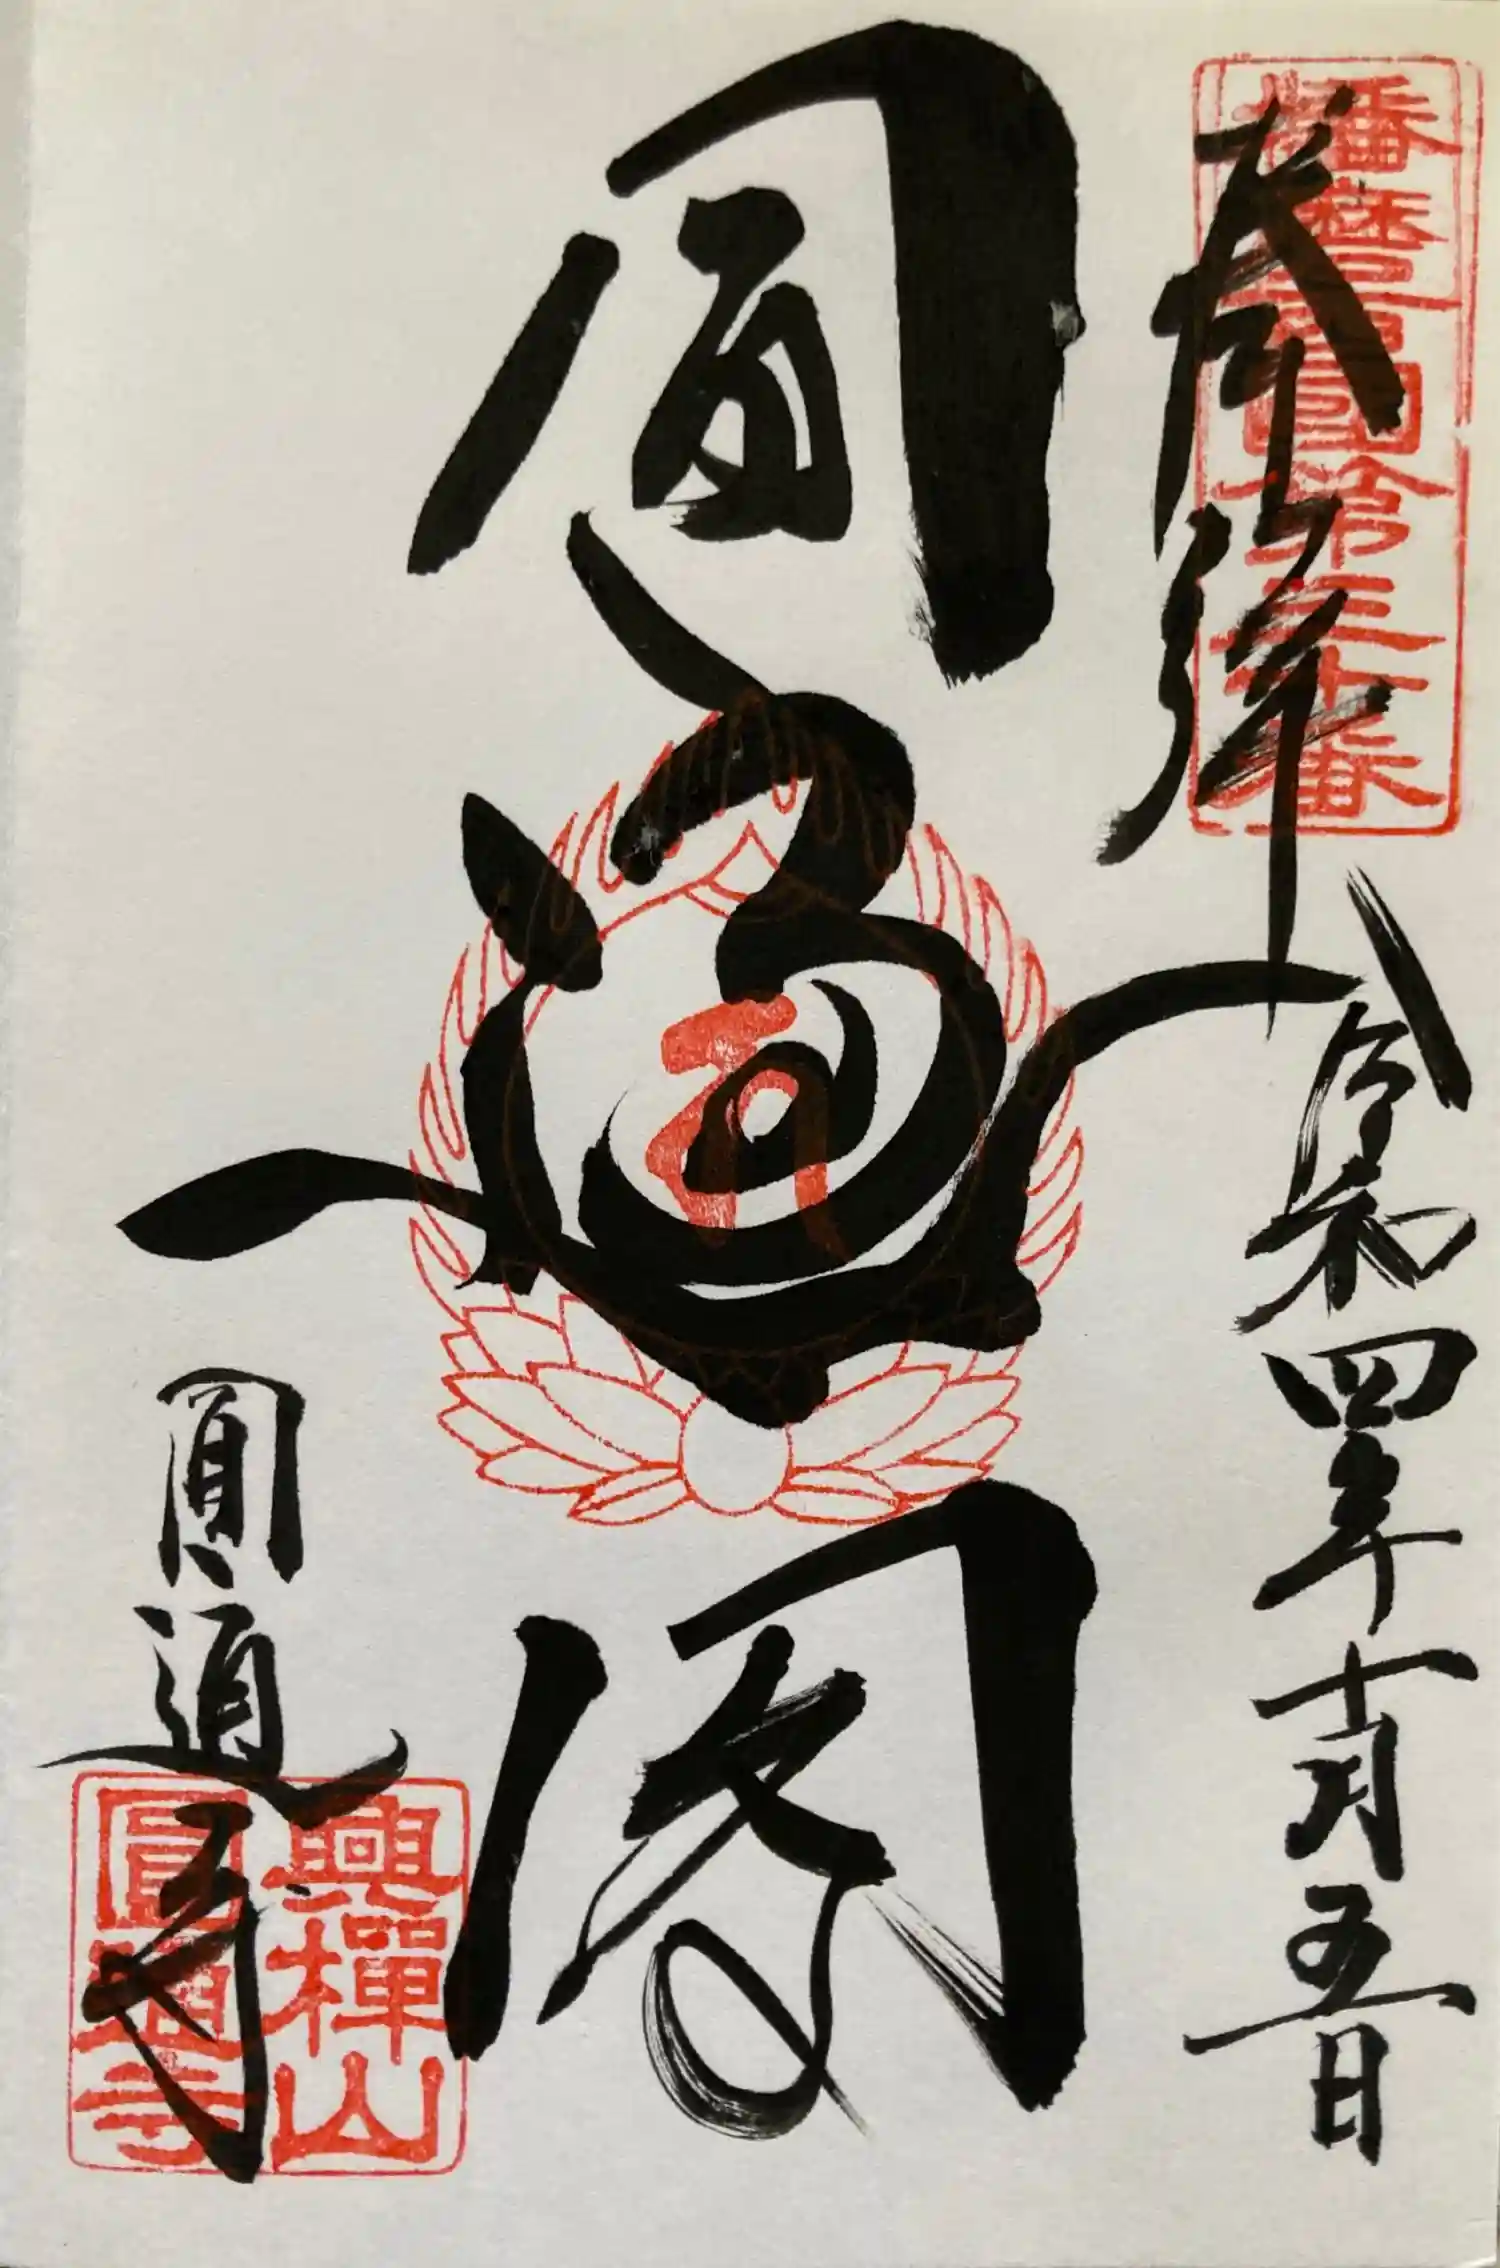 奉拝
令和四年十月五日
播磨西國第三十番
圓通閣
圓通寺
興禪山
圓通寺